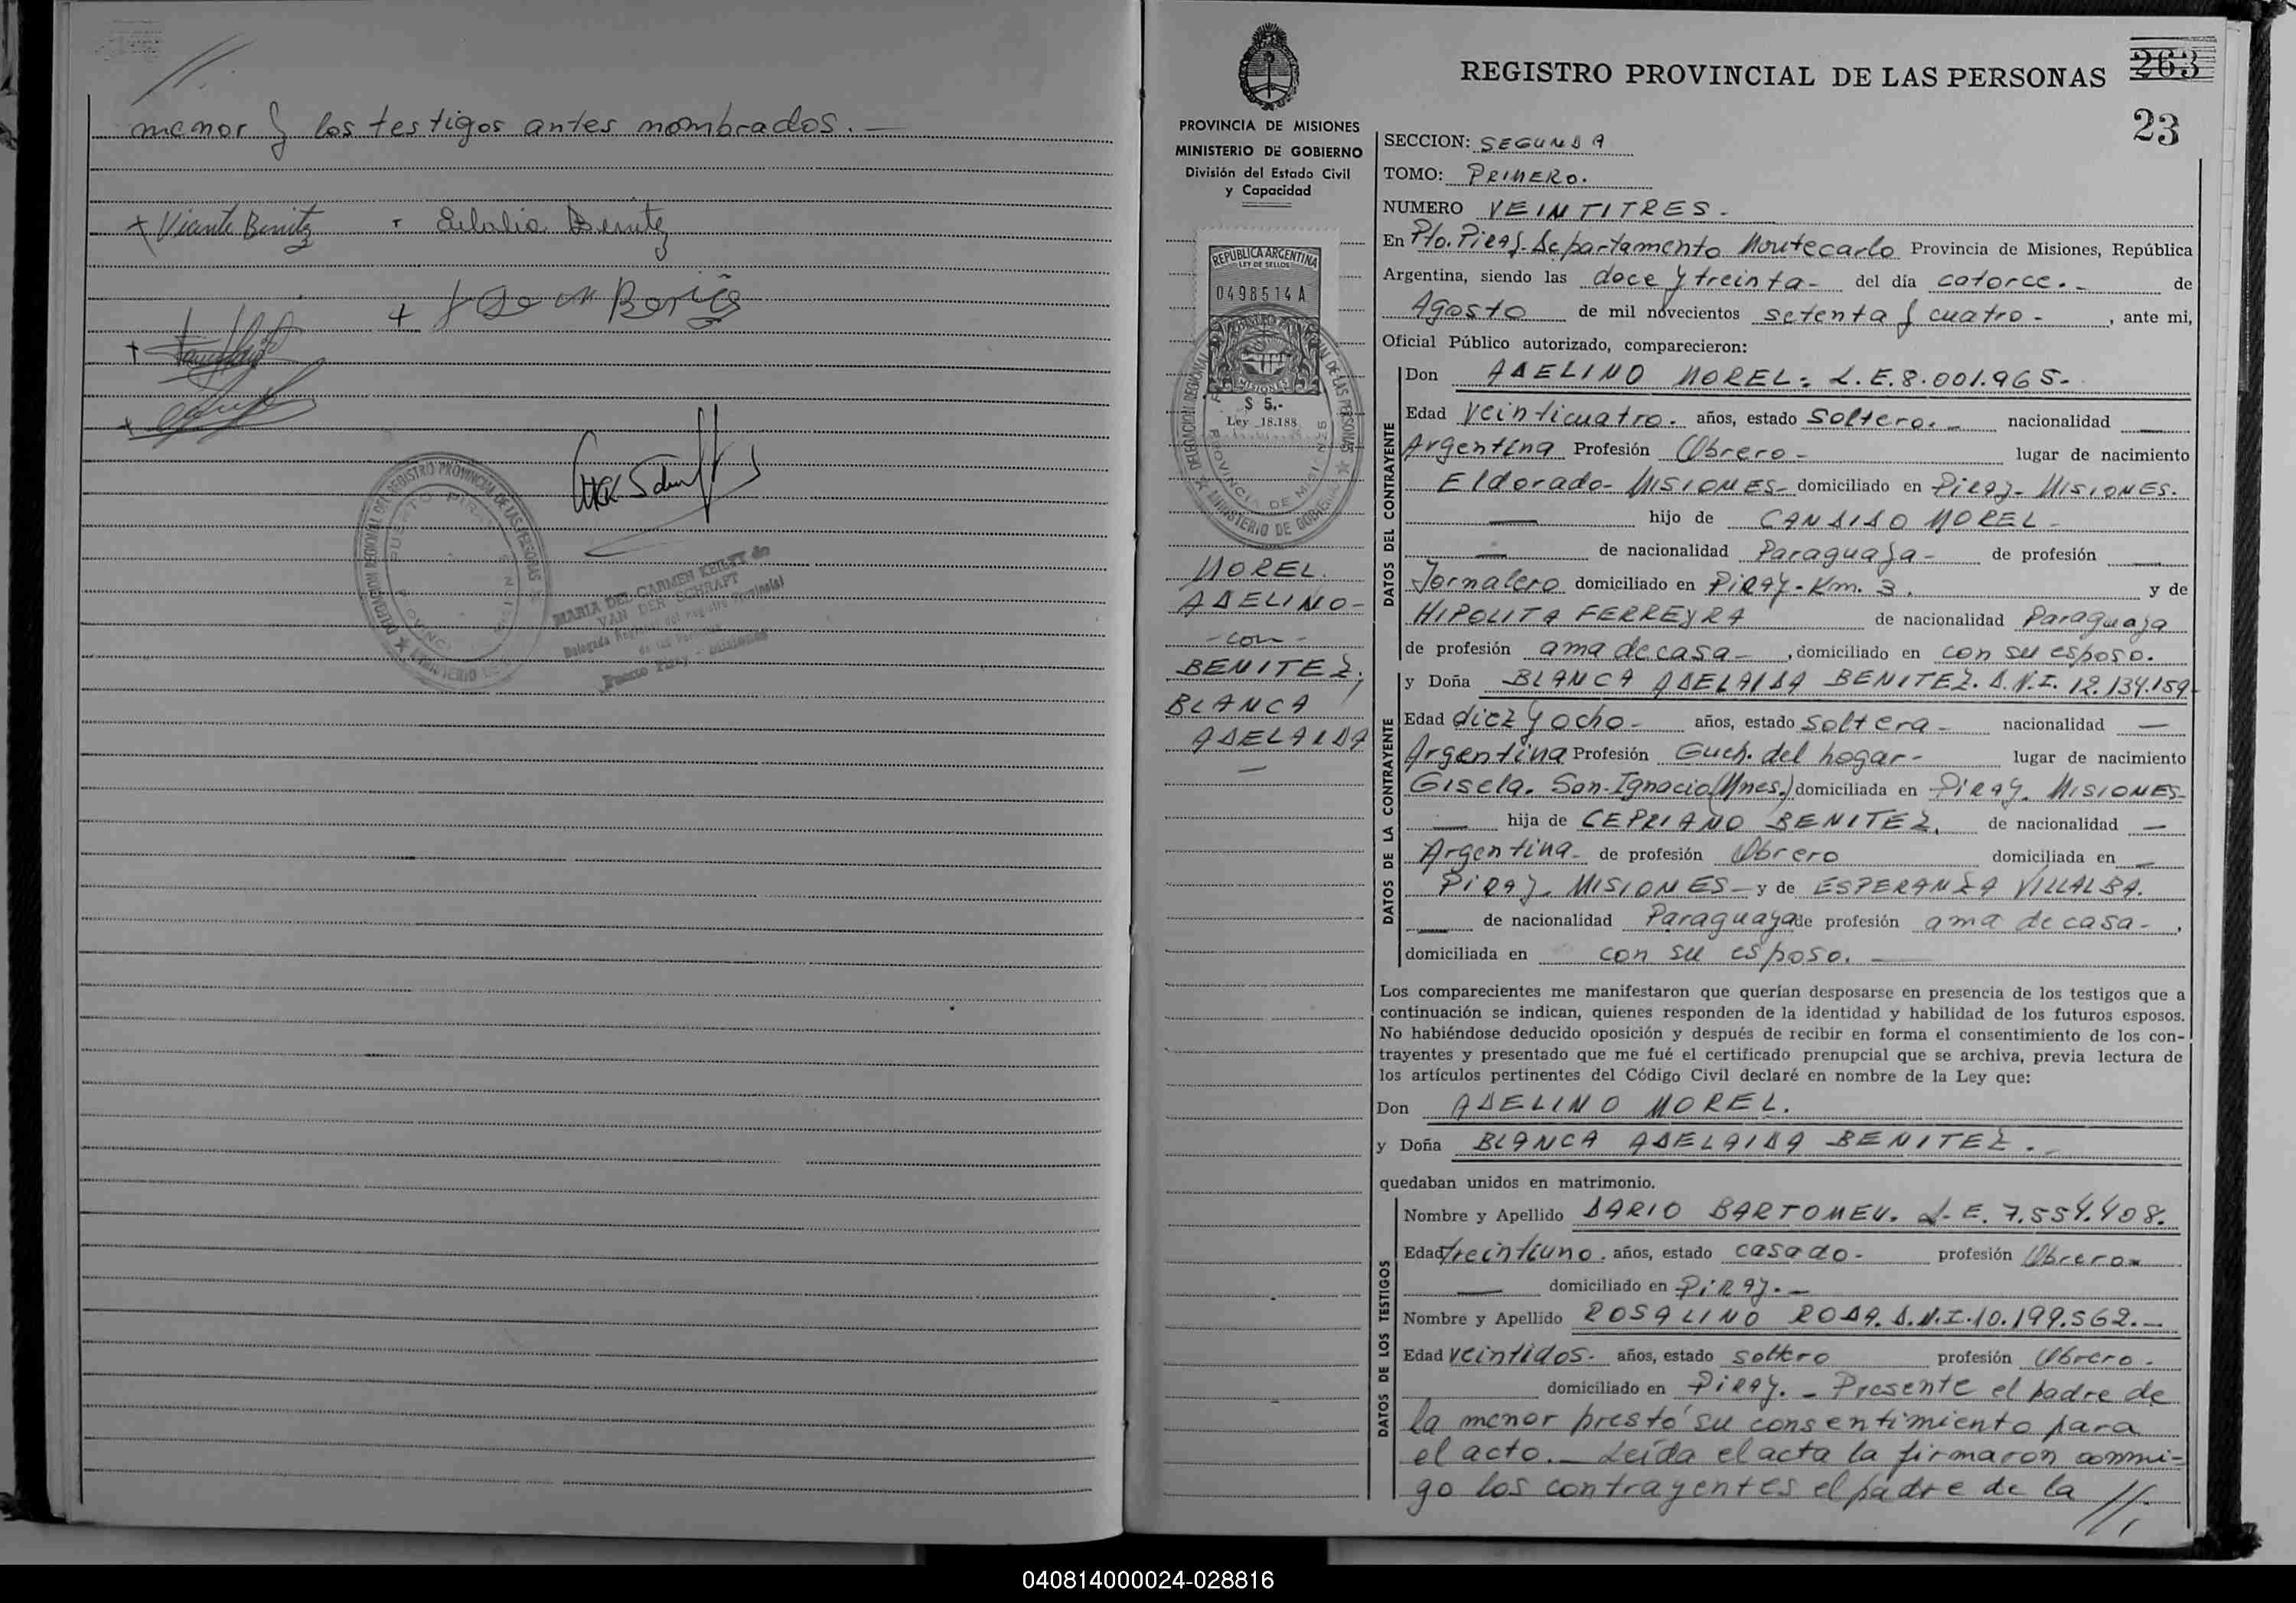 //.
menor y los testigos antes nombrados. —
+ Vicente Benitz
+ Eulalia Benitez
+
+
+
DELEGACION REGIONAL DEL REGISTRO PROVINCIAL DE LAS PERSONAS
MARIA DEL CARMEN KEILTY de
VAN DER SCHRAFT
Delegada Regional del Registro Provincial
de las Personas
Puerto Piray - Misiones
PROVINCIA DE MISIONES
MINISTERIO DE GOBIERNO
División del Estado Civil
y Capacidad
REPUBLICA ARGENTINA
LEY DE SELLOS
0498514 A
MISIONES
$ 5.-
Ley 18.188
DELEGACION REGIONAL DEL REGISTRO PROVINCIAL DE LAS PERSONAS
PROVINCIA DE MISIONES
MINISTERIO DE GOBIERNO
MOREL.
ADELINO-
- con -
BENITEZ,
BLANCA
ADELAIDA
—
REGISTRO PROVINCIAL DE LAS PERSONAS
263
23
SECCION: SEGUNDA
TOMO: PRIMERO.
NUMERO VEINTITRES.
En Pto. Piray. Departamento Montecarlo Provincia de Misiones, República
Argentina, siendo las doce y treinta- del día catorce.- de
Agosto de mil novecientos setenta y cuatro- , ante mi,
Oficial Público autorizado, comparecieron:
DATOS DEL CONTRAYENTE
Don ADELINO MOREL= L.E.8.001.965-
Edad veinticuatro. años, estado soltero.- nacionalidad —
Argentina Profesión Obrero- lugar de nacimiento
Eldorado- MISIONES- domiciliado en Piray- MISIONES.
— hijo de CANDIDO MOREL-
— de nacionalidad Paraguaya- de profesión —
Jornalero domiciliado en PIRAY-Km. 3. y de
HIPOLITA FERREYRA de nacionalidad Paraguaya
de profesión ama de casa- , domiciliado en con su esposo.
DATOS DE LA CONTRAYENTE
y Doña BLANCA ADELAIDA BENITEZ. D.N.I. 12.134.159-
Edad diez y ocho- años, estado soltera- nacionalidad —
Argentina Profesión Queh. del hogar- lugar de nacimiento
Gisela. San-Ignacio(Mnes.) domiciliada en PIRAY. MISIONES-
— hija de CEPRIANO BENITEZ, de nacionalidad —
Argentina- de profesión Obrero domiciliada en —
PIRAY. MISIONES- y de ESPERANZA VILLALBA.
— de nacionalidad Paraguaya de profesión ama de casa- ,
domiciliada en con su esposo. —
Los comparecientes me manifestaron que querían desposarse en presencia de los testigos que a
continuación se indican, quienes responden de la identidad y habilidad de los futuros esposos.
No habiéndose deducido oposición y después de recibir en forma el consentimiento de los con-
trayentes y presentado que me fué el certificado prenupcial que se archiva, previa lectura de
los artículos pertinentes del Código Civil declaré en nombre de la Ley que:
Don ADELINO MOREL.
y Doña BLANCA ADELAIDA BENITEZ.-
quedaban unidos en matrimonio.
DATOS DE LOS TESTIGOS
Nombre y Apellido DARIO BARTOMEU. L-E. 7.554.408.
Edad treintiuno. años, estado casado- profesión Obrero=
— domiciliado en PIRAY.-
Nombre y Apellido ROSALINO RODA. D.N.I.10.199.562.-
Edad veintidos- años, estado soltero profesión Obrero.
domiciliado en PIRAY.- Presente el padre de
la menor prestó su consentimiento para
el acto.- Leída el acta la firmaron conmi-
go los contrayentes el padre de la //.
040814000024-028816